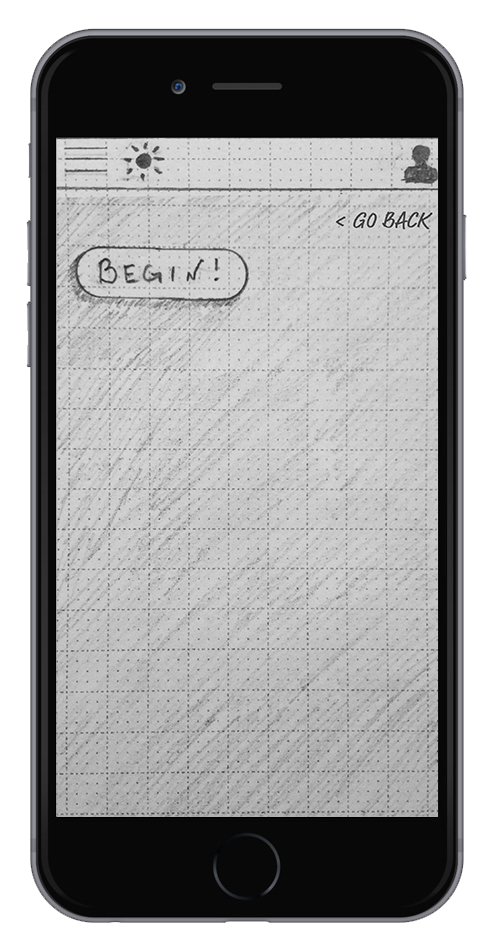 < GO BACK
BEGIN!